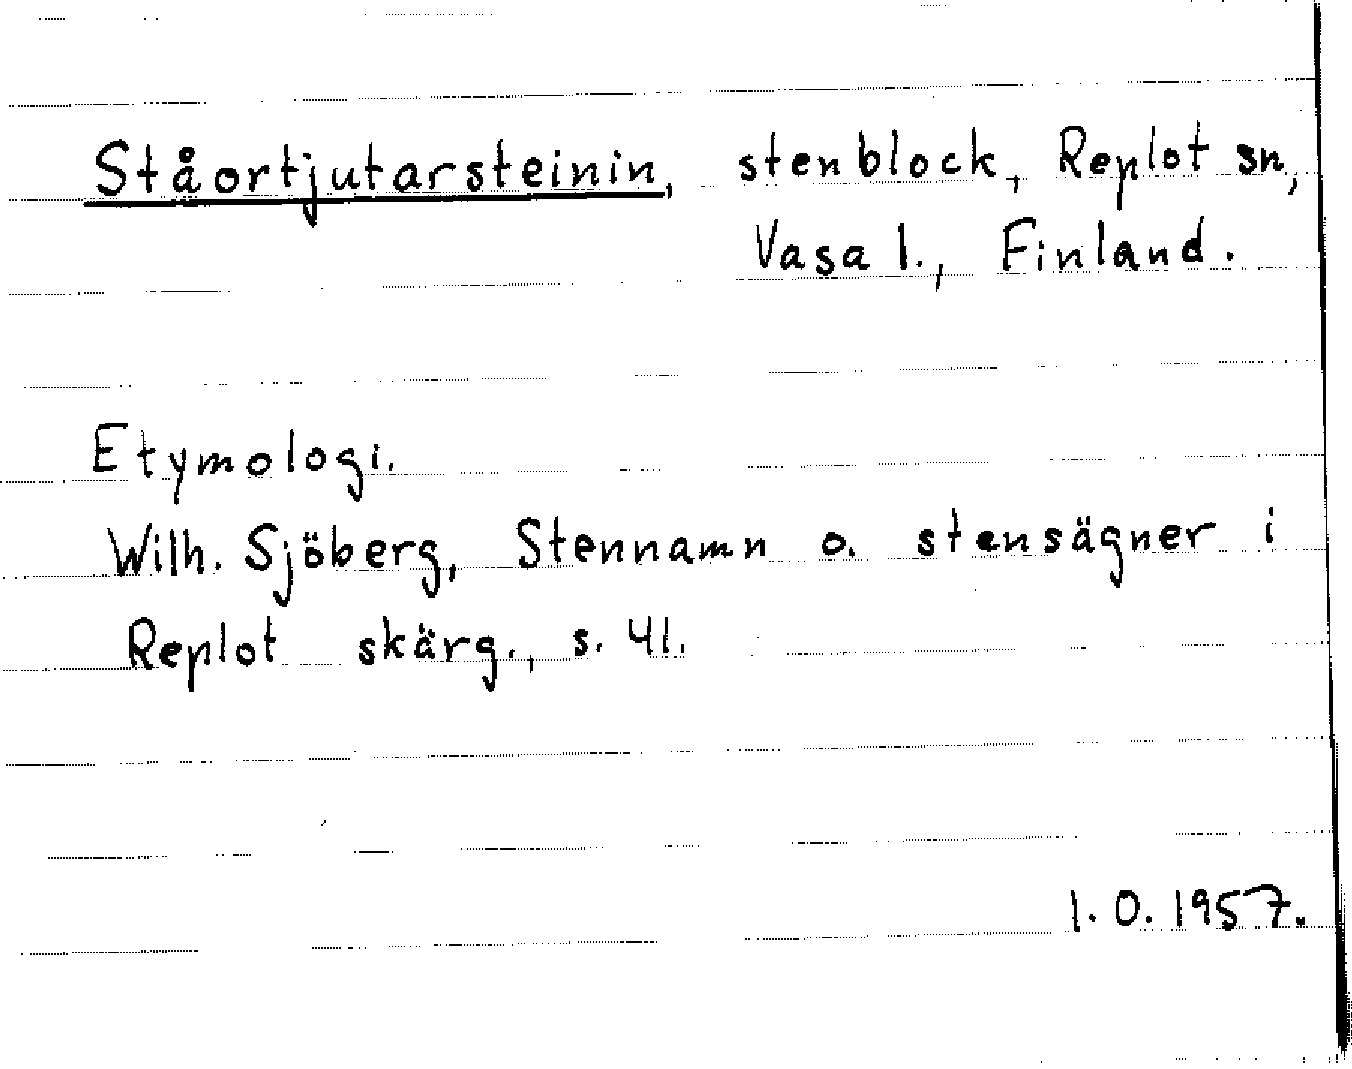 Ståortjutarsteinin, stenblock, Replot sn,
Vasa l., Finland.
Etymologi.
Wilh. Sjöberg, Stennamn o. stensägner i
Replot skärg., s. 41.
I. O. 1957.